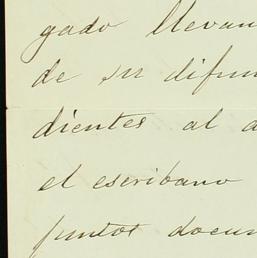 gado llevan
de su difun
dientes al a
el escribano
juntos docum